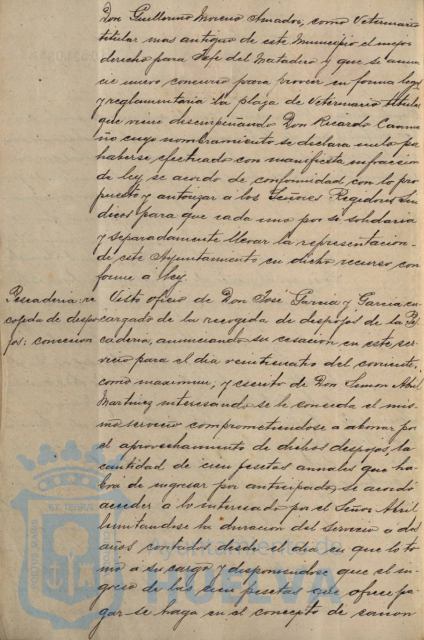 Don Guillermo Moreno Amador, como Veterinario
titular mas antiguo de este Municipio el mejor
derecho para Jefe del Matadero y que se anun
cie nuevo concurso para proveer en forma legal
y reglamentaria la plaza de Veterinario titular
que viene desempeñando Don Ricardo Caama
ño cuyo nombramiento se declara nulo por
haberse efectuado con manifiesta infraccion
de ley, se acordo de conformidad con lo pro
puesto y autorizar a los Señores Regidores Sin
dicos para que cada uno por si solidaria
y separadamente llevar la representacion
de este Ayuntamiento en dicho recurso con
forme a ley.
Pescaderia: re
cogida de despo
jos: concesion
Visto oficio de Don José Garcia y Garcia en
cargado de la recogida de despojos de la Pes
caderia, anunciando su cesacion en este ser
vicio para el dia veinticuatro del corriente,
como maximun, y escrito de Don Simon Abril
Martinez interesando se le conceda el mis
mo servicio comprometiendose a abonar por
el aprovechamiento de dichos despojos, la
cantidad de cien pesetas anuales que ha
bra de ingresar por anticipado, se acordó
acceder a lo interesado por el Señor Abril
limitandose la duracion del servicio a dos
años contados desde el dia en que lo to
mó a su cargo y disponiendose que el in
greso de las cien pesetas que ofrece pa
gar se haga en el concepto de canon
Ayuntamiento de
HUELVA